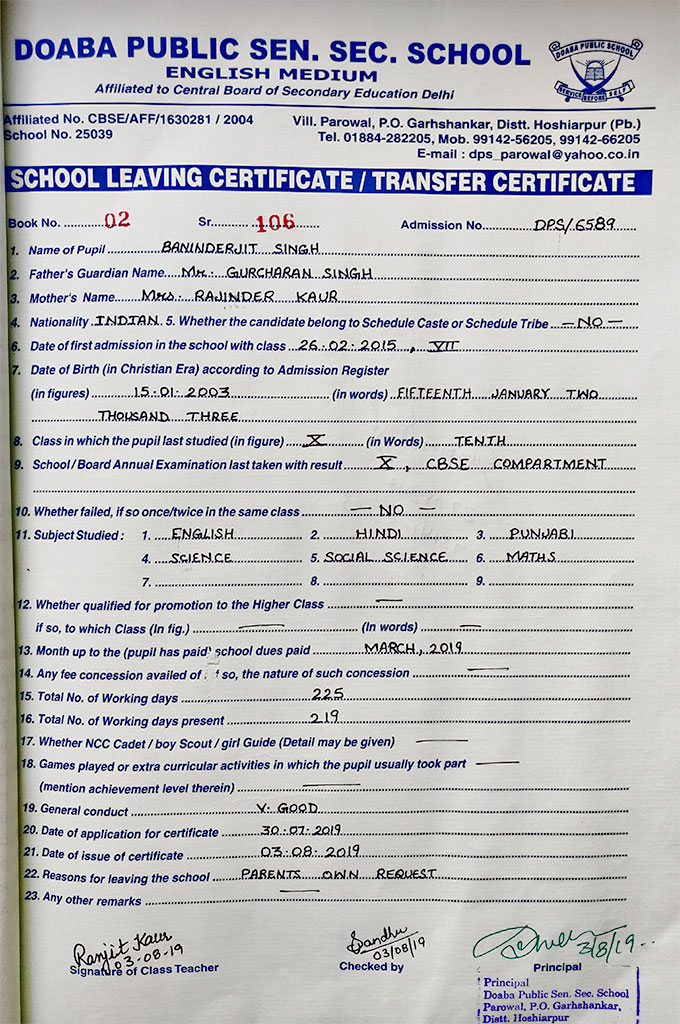 DOABA PUBLIC SEN. SEC. SCHOOL
ENGLISH MEDIUM
Affiliated to Central Board of Secondary Education Delhi
DOABA PUBLIC SCHOOL
SERVICE BEFORE SELF
Affiliated No. CBSE/AFF/1630281 / 2004
School No. 25039
Vill. Parowal, P.O. Garhshankar, Distt. Hoshiarpur (Pb.)
Tel. 01884-282205, Mob. 99142-56205, 99142-66205
E-mail : dps_parowal@yahoo.co.in
SCHOOL LEAVING CERTIFICATE / TRANSFER CERTIFICATE
Book No. 02 Sr. 106 Admission No. DPS/6589
1. Name of Pupil BANINDERJIT SINGH
2. Father's Guardian Name Mr. GURCHARAN SINGH
3. Mother's Name Mrs. RAJINDER KAUR
4. Nationality INDIAN 5. Whether the candidate belong to Schedule Caste or Schedule Tribe — NO —
6. Date of first admission in the school with class 26.02.2015, VII
7. Date of Birth (in Christian Era) according to Admission Register
(in figures) 15.01.2003 (in words) FIFTEENTH JANUARY TWO
THOUSAND THREE
8. Class in which the pupil last studied (in figure) X (in Words) TENTH
9. School / Board Annual Examination last taken with result X, CBSE COMPARTMENT
10. Whether failed, if so once/twice in the same class — NO —
11. Subject Studied : 1. ENGLISH 2. HINDI 3. PUNJABI
4. SCIENCE 5. SOCIAL SCIENCE 6. MATHS
7. 8. 9.
12. Whether qualified for promotion to the Higher Class —
if so, to which Class (In fig.) — (In words) —
13. Month up to the (pupil has paid) school dues paid MARCH, 2019
14. Any fee concession availed of f so, the nature of such concession —
15. Total No. of Working days 225
16. Total No. of Working days present 219
17. Whether NCC Cadet / boy Scout / girl Guide (Detail may be given) —
18. Games played or extra curricular activities in which the pupil usually took part —
(mention achievement level therein) —
19. General conduct V. GOOD
20. Date of application for certificate 30.07.2019
21. Date of issue of certificate 03.08.2019
22. Reasons for leaving the school PARENTS OWN REQUEST
23. Any other remarks —
Ranjit Kaur
03-08-19
Signature of Class Teacher
Sandhu
03/08/19
Checked by
3/8/19
Principal
Principal
Doaba Public Sen. Sec. School
Parowal, P.O. Garhshankar,
Distt. Hoshiarpur